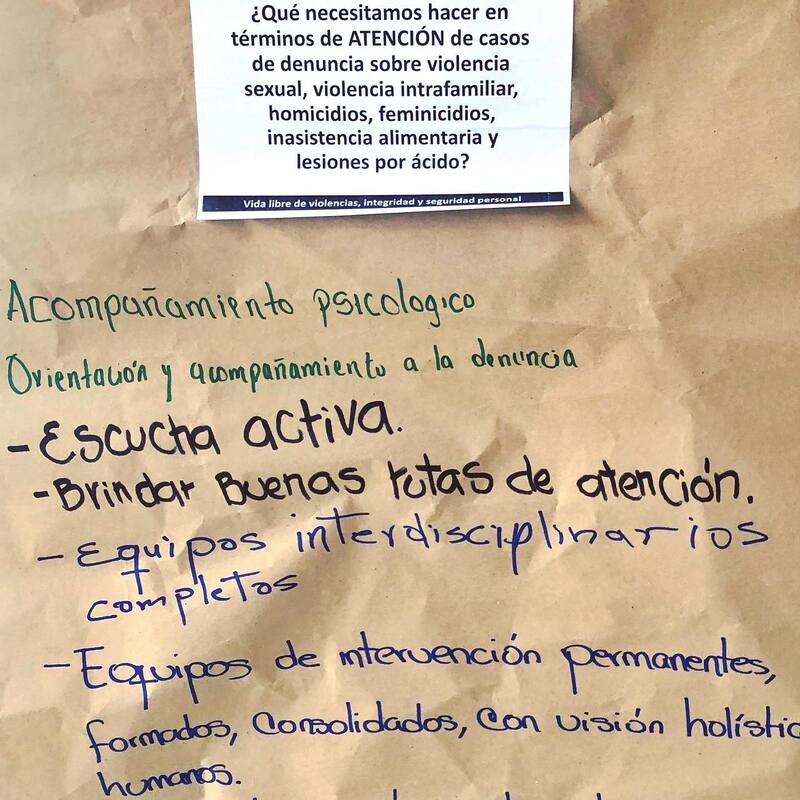 ¿Qué necesitamos hacer en
términos de ATENCIÓN de casos
de denuncia sobre violencia
sexual, violencia intrafamiliar,
homicidios, feminicidios,
inasistencia alimentaria y
lesiones por ácido?
Vida libre de violencias, integridad y seguridad personal
Acompañamiento psicologico
Orientación y acompañamiento a la denuncia
- Escucha activa.
- Brindar Buenas rutas de atención.
- Equipos interdisciplinarios
completos
- Equipos de intervención permanentes,
formados, consolidados, con visión holístic
humanos.